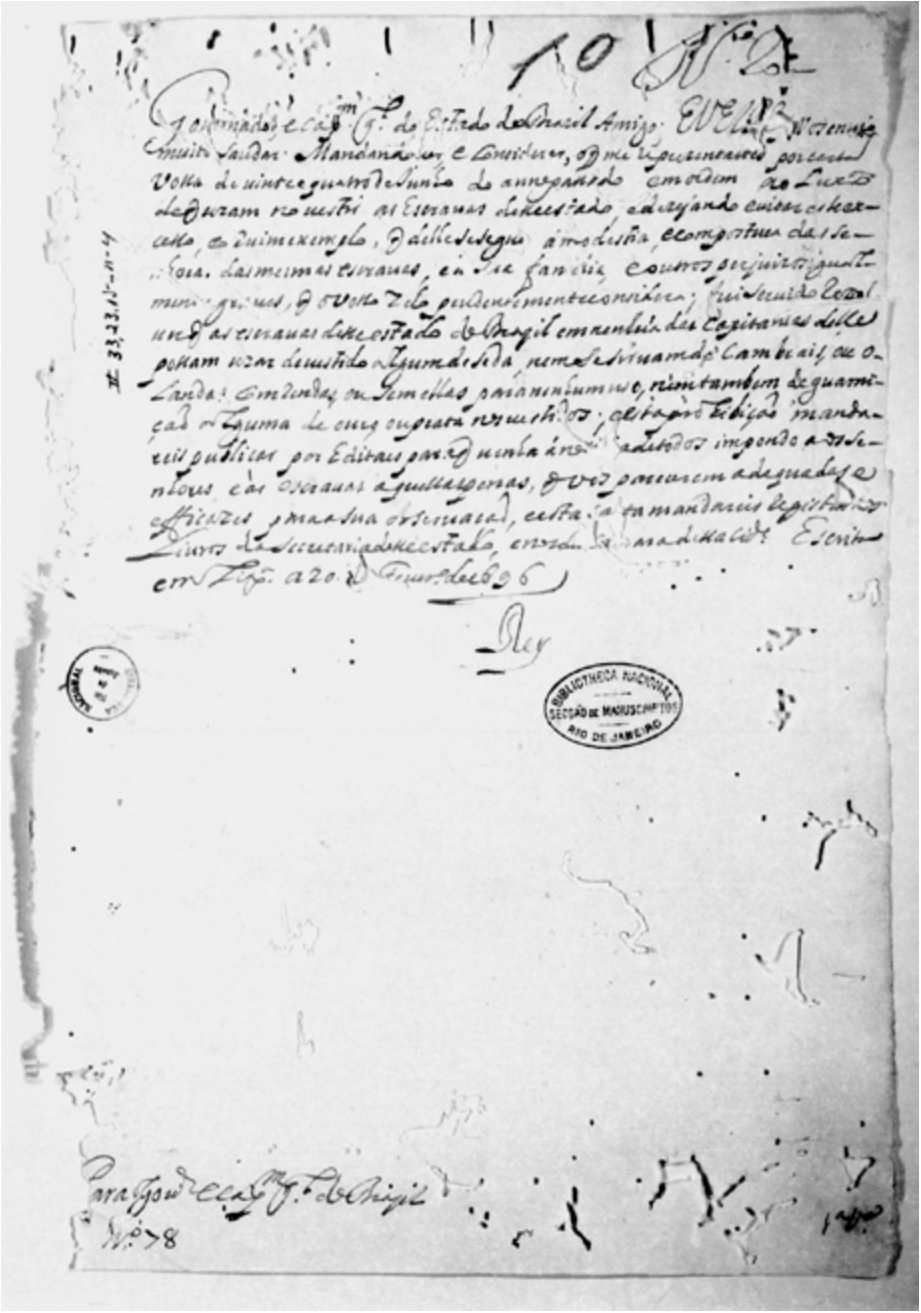 10 N.º 2
Governador e Capp.m G.l do Estado do Brazil Amigo. EU EL REY vos envio
muito saudar. Mandando ver, e Considerar, o q me representastes por carta
Vossa de vinte e quatro de Junho do anno passado em ordem ao Luxo
de q uzam no vestir as Escravas desse estado, e dezejando evitar este ex-
cesso, e o Ruim exemplo, q delle se segue á modestia, e compostura das Se-
nhoras das mesmas escravas, e a sua familia, e outros perjuizos igual-
mente graves, q o Vosso Zelo prudentemente considera; fui servido Rezol
ver q as escravas desse estado do Brazil em nenhúa das Capitanias delle
possam uzar de vestido algum de seda, nem se sirvam de Cambrais, ou o-
landas, com rendas, ou sem ellas, para nenhum uso, nem tambem de guarni-
ção alguma de ouro, ou prata nos vestidos; e esta prohibição manda-
reis publicar por Editaes para q venha á noticia de todos impondo aos Se-
nhores, e ás escravas aquellas penas, q vos parecerem adequadas e
efficazes para a sua observação, e esta carta mandareis registar nos
Livros da Secretaria desse estado, e nos da Camara dessa cid.e Escrita
em Lix.ª a 20 de Fever.º de 1696
Rey
II-33,23,15-n-4
BIBLIOTHECA NACIONAL
SECÇÃO DE MANUSCRIPTOS
RIO DE JANEIRO
NACIONAL
Para o Gov.or e Cap.m G.l do Brazil
N.º 78
1.ª via